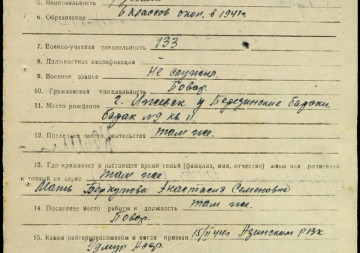 5. Национальность
6. Образование 6 классов окон. в 1941 г.
7. Военно-учетная специальность 133
8. Должностная квалификация
9. Военное звание Не служил.
10. Гражданская специальность Повар.
11. Место рождения г. Ижевск у Березинские бараки
барак № 2 кв 11.
12. Последнее место жительства там же.
13. Где проживает в настоящее время семья (фамилия, имя, отчество) жены или родителей
и точный их адрес Там же.
Мать Беркутова Анастасия Семеновна
14. Последнее место работы и должность там же.
Повар.
15. Каким райгорвоенкоматом и когда призван Азинским РВК
Удмур АССР.